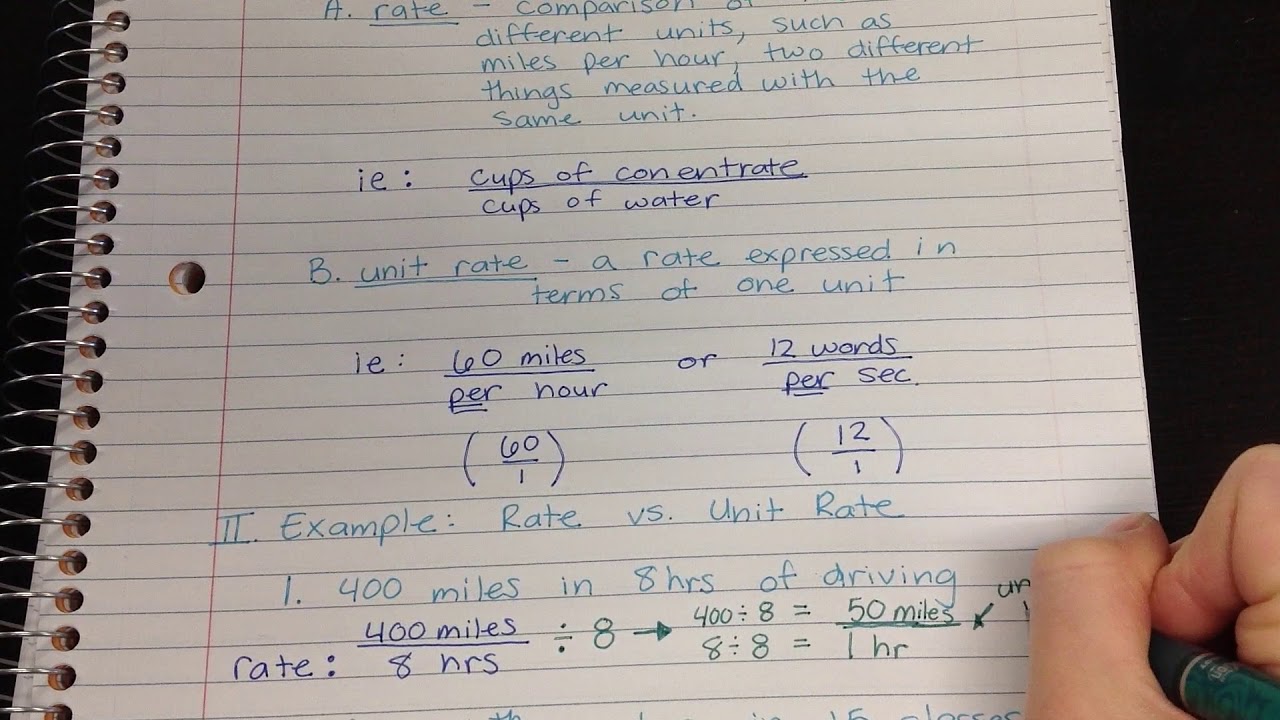 A. rate - comparison of
different units, such as
miles per hour, two different
things measured with the
same unit.
ie: cups of conentrate
cups of water
B. unit rate - a rate expressed in
terms of one unit
ie: 60 miles or 12 words
per hour per sec.
(60/1) (12/1)
II. Example: Rate vs. Unit Rate
1. 400 miles in 8hrs of driving
rate: 400 miles / 8 hrs ÷ 8 → 400÷8 = 50 miles
8÷8 = 1 hr
in 15